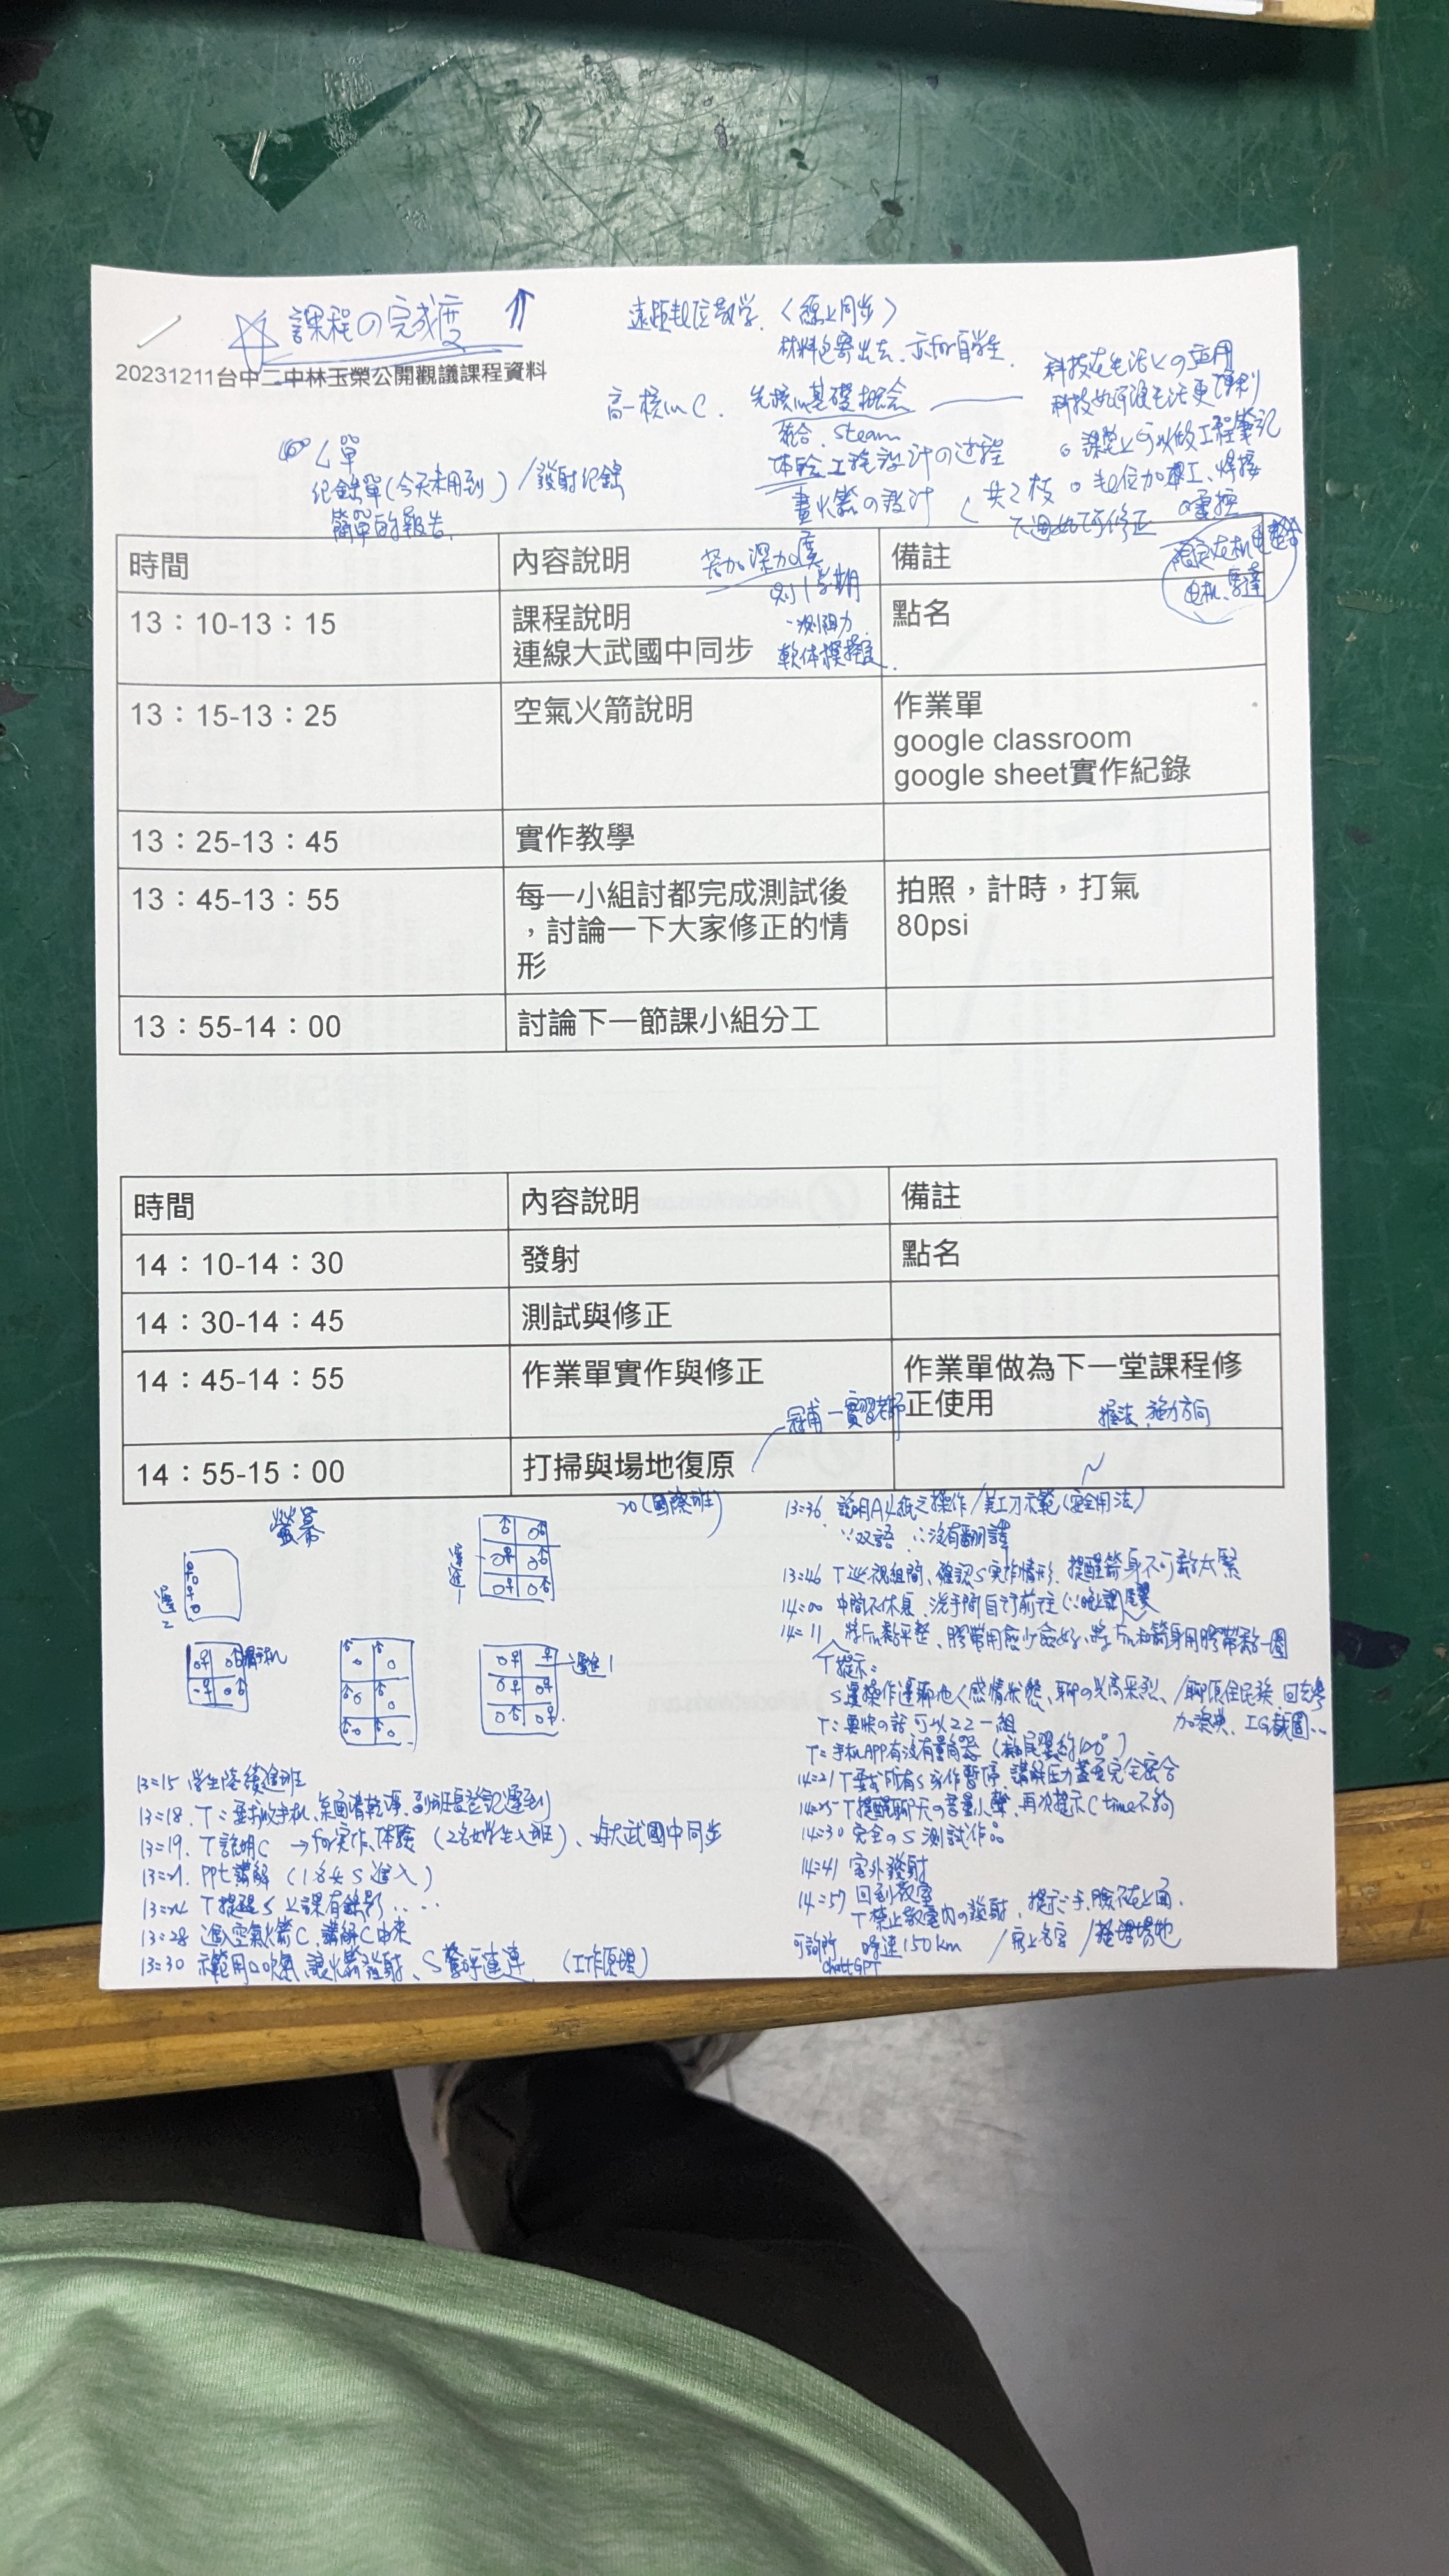 課程の完成度
遠距數位教學〈線上同步〉
材料包寄出去、亦可自學生
20231211台中二中林玉榮公開觀議課程資料
高一核心C. 先核心基礎概念
科技在生活上の应用
科技如何讓生活更便利
整合.steam
課堂上可以做工程筆記
体驗工程設計の过程
單
紀錄單(今天未用到)/發射紀錄
畫火箭の設計
共2枝
數位加工、焊接
簡單的報告.
時間 內容說明 備註
若加深加廣
則1学期
測阻力
軟体模擬
13：10-13：15 課程說明 點名
連線大武國中同步
13：15-13：25 空氣火箭說明 作業單
google classroom
google sheet實作紀錄
13：25-13：45 實作教學
13：45-13：55 每一小組討都完成測試後 拍照，計時，打氣
，討論一下大家修正的情 80psi
形
13：55-14：00 討論下一節課小組分工
時間 內容說明 備註
14：10-14：30 發射 點名
14：30-14：45 測試與修正
14：45-14：55 作業單實作與修正 作業單做為下一堂課程修
正使用
實習老師
握法、施力方向
14：55-15：00 打掃與場地復原
螢幕
20(國際班)
遲1
遲2
遲進1
13:15 学生陸續進班
13:18. T：要求收手机、桌面清乾淨、副班長登記遲到
13:19. T說明C → for实作、体驗 (2名女学生入班)、與大武國中同步
13:21. PPt講解 (1名女S進入)
13:24 T提醒S上課有錄影....
13:28 進入空氣火箭C、講解C由來
13:30 示範用口吹氣讓火箭發射、S驚呼連連 (工作原理)
13:36. 說明A4紙之操作/美工刀示範(安全用法)
∵双語 ∴沒有翻譯
13:46 T巡視組間、確認S实作情形. 提醒箭身不可黏太緊
14:00 中間不休息、洗手間自行前往
14:11 將Fin黏平整、膠帶用愈少愈好、將Fin和箭身用膠帶黏一圈
T提示：
S邊操作邊聊他人感情狀態、聊の兴高采烈、/聊原住民族
加演、IG截圖..
T：要快の話可以22一組
T：手机APP有沒有量角器
14:21 T要求所有S实作暫停、講解压力蓋要完全密合
14:25 T提醒聊天の音量小聲、再次提示C time不夠
14:30 完全のS測試作品
14:41 室外發射
14:57 回到教室
T禁止教室內の發射、提示：手、臉不在上面.
可詢問 時速150km /寫上名字/整理場地
ChatGPT